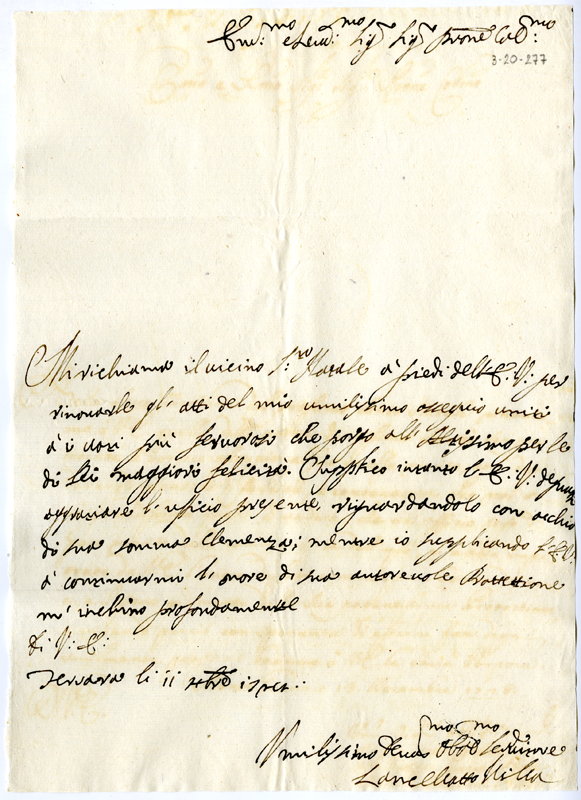 Em.mo e Rev.mo Sig.r Sig.r Prone Col.mo
3-20-277
Mi richiama il vicino S.ro Natale à piedi dell' E. V. per
rinovarle gl' atti del mio umilissimo ossequio uniti
à i voti più fervorosi che porgo all' Altissimo per le
di Lei maggiori felicità. Supplico intanto l' E. V.
aggraziare l' ufficio presente, riguardandolo con occhio
di sua somma Clemenza; mentre io supplicando l' E. V.
à continuarmi l' onore di sua autorevole Protettione
m' inchino profondamente
Di V. E.
Ferrara li 11 Xbre
Umilissimo Devmo Obbmo Servidore
Lancellotto Villa